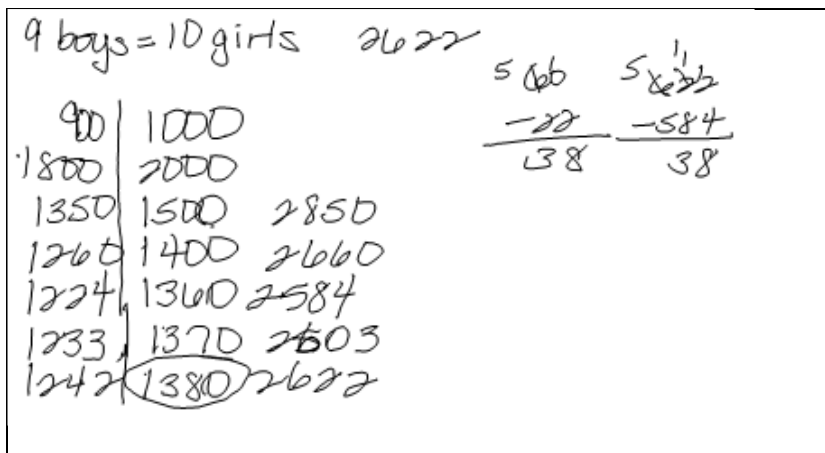 9 boys = 10 girls 2622
900 1000
1800 2000
1350 1500 2850
1260 1400 2660
1224 1360 2584
1233 1370 2603
1242 1380 2622
5 66
-22
38
5 622
-584
38